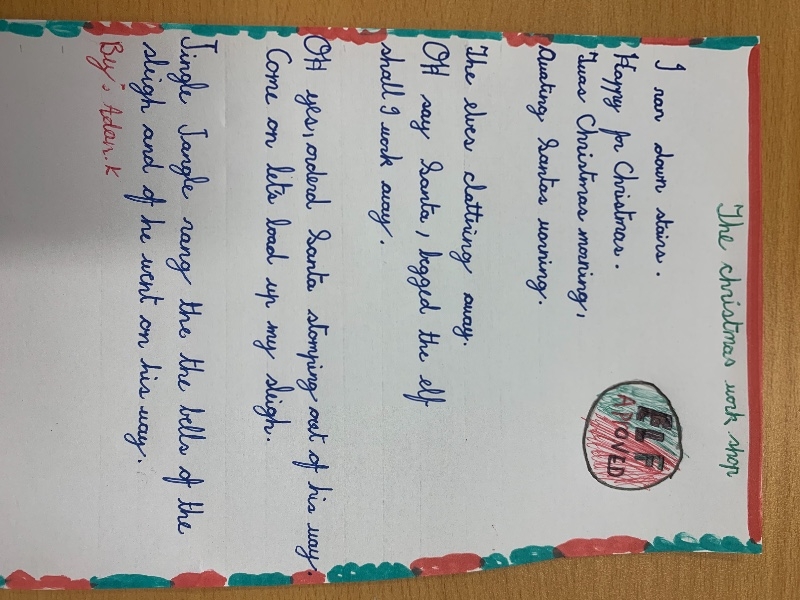 The christmas work shop
I ran down stairs.
Happy for Christmas.
Twas Christmas morning,
Awating Santas worning.
ELF
APROVED
The elves clattring away.
OH say Santa, begged the elf
shall I work away.
OH yes, orderd Santa stomping out of his way.
Come on let's load up my sleigh.
Jingle Jangle rang the the bells of the
sleigh and of he went on his way.
By: Adan.K